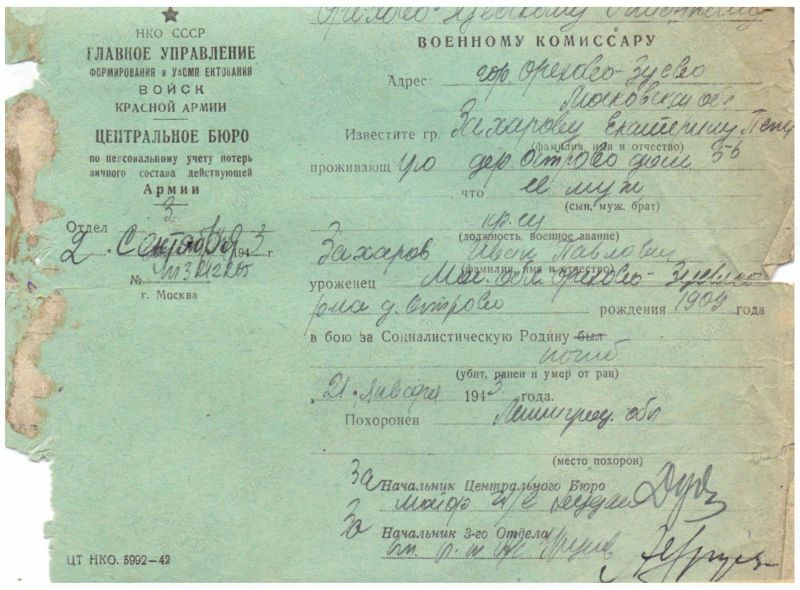 НКО СССР
ГЛАВНОЕ УПРАВЛЕНИЕ
ФОРМИРОВАНИЯ и УКОМПЛЕКТОВАНИЯ
ВОЙСК
КРАСНОЙ АРМИИ
ЦЕНТРАЛЬНОЕ БЮРО
по персональному учету потерь
личного состава действующей
Армии
3
Отдел
2 Сентября 1943 г.
№
г. Москва
ЦТ НКО. 5992—42
Орехово-Зуевскому
ВОЕННОМУ КОМИССАРУ
Адрес гор. Орехово-Зуево
Московской обл
Известите гр. Захарову Екатерину
(фамилия, имя и отчество)
проживающ ую дер. Острово дом 36
что ее муж
(сын, муж, брат)
кр-ец
(должность, военное звание)
Захаров Иван Павлович
(фамилия, имя и отчество)
уроженец Мос. обл. Орехово-Зуевского
р-на д. Острово рождения 1909 года
в бою за Социалистическую Родину был
погиб
(убит, ранен и умер от ран)
„21„ января 1943 года.
Похоронен Ленинград. обл
(место похорон)
За Начальник Центрального Бюро
майор
За Начальник 3-го Отдела